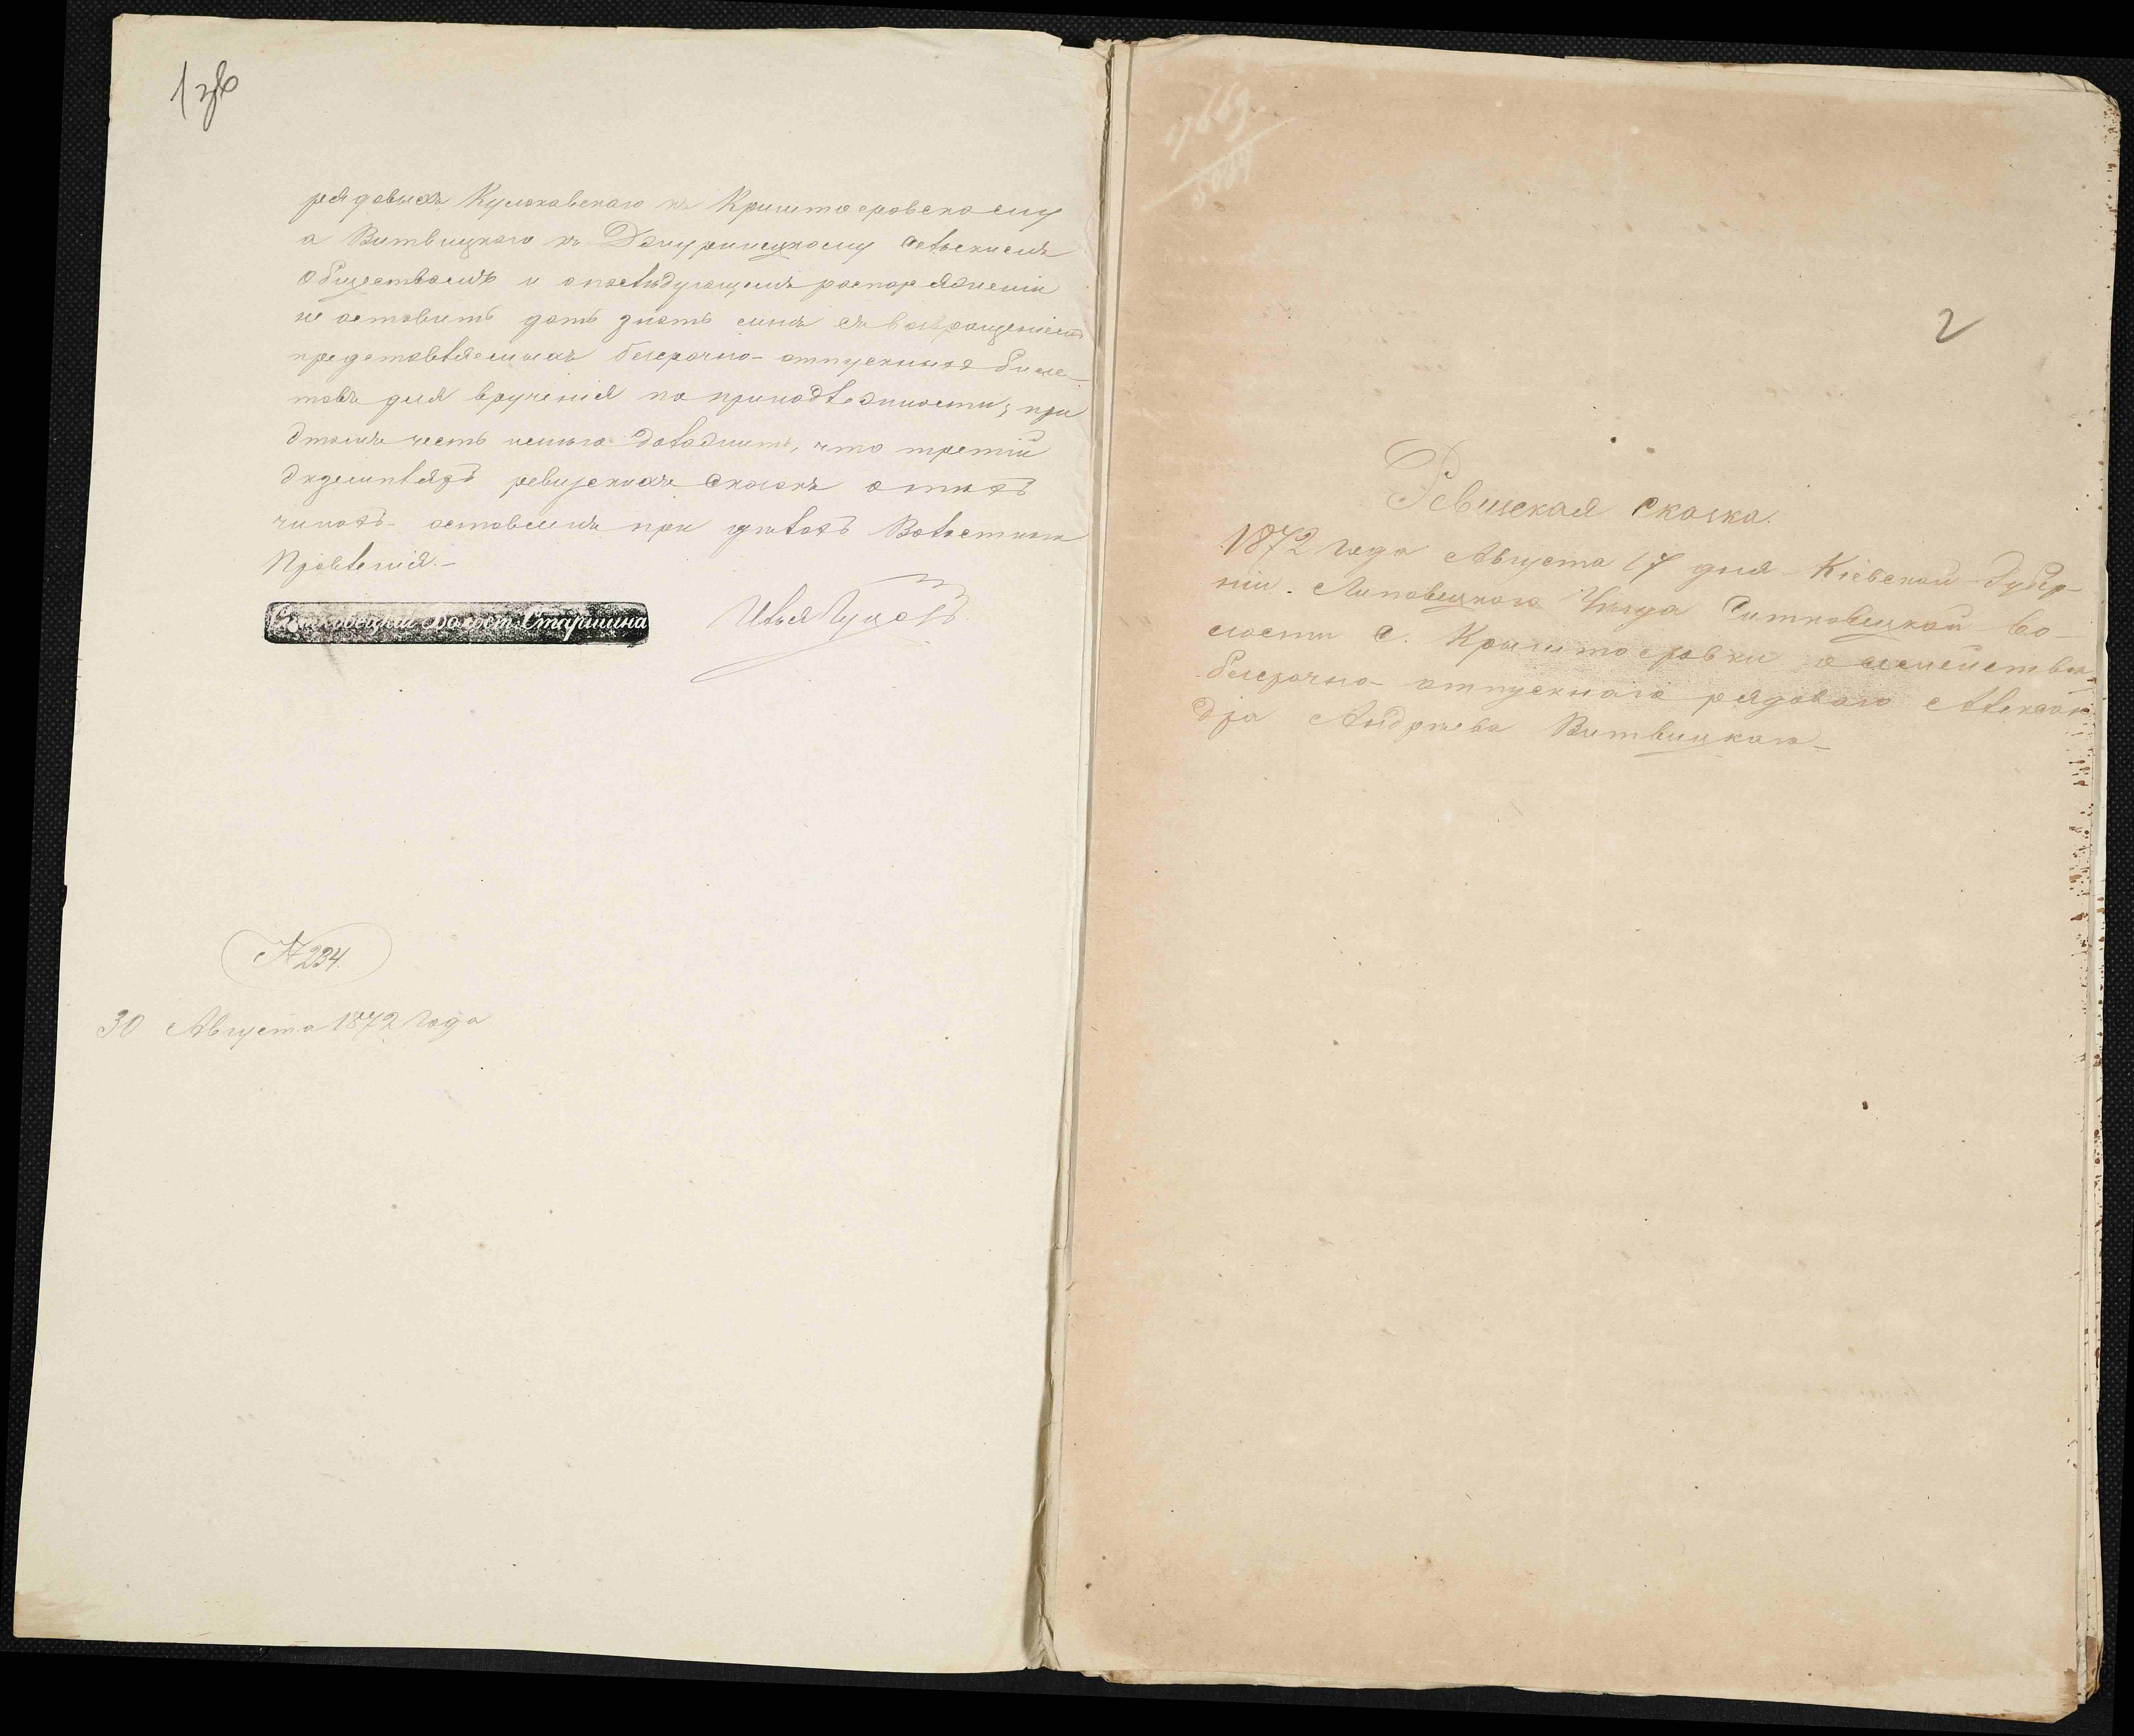 1 зв
рядовыхъ Кульковскаго къ Криштофовскому
а Витвицкого къ Долуринецкому сельскимъ
обществамъ и опослѣдующемъ распоряженіи
не оставить дать знать съ возвращеніемъ
представляемыхъ безсрочно-отпускныхъ биле-
товъ для врученія по принадлежности; при
этомъ честь имѣю доложить, что третій
экземпляръ ревизскихъ сказокъ о
чинахъ оставленъ при дѣлахъ Волостнаго
Правленія.-
Ситковецкій Волост. Старшина
Илья
№ 234.
30 Августа 1872 года
2
Ревизская сказка.
1872 года Августа 17 дня Кіевской Губер-
ніи. Липовецкаго Уѣзда Ситковецкой во-
лости с. Криштофовки о семействѣ
безсрочно-отпускнаго рядоваго Алексан-
дра Андреева Витвицкаго-